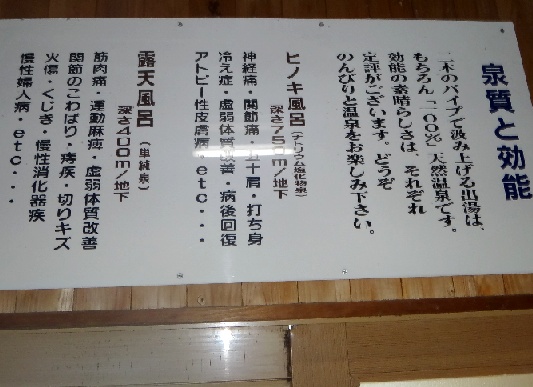 泉質と効能
二本のパイプで汲み上げる出湯は、
もちろん「一〇〇％」天然温泉です。
効能の素晴らしさは、それぞれ
定評がございます。どうぞ
のんびりと温泉をお楽しみ下さい。
ヒノキ風呂（ナトリウム塩化物泉）
深さ750m/地下
神経痛・関節痛・五十肩・打ち身
冷え症・虚弱体質改善・病後回復
アトピー性皮膚病・etc・・・
露天風呂（単純泉）
深さ400m/地下
筋肉痛・運動麻痺・虚弱体質改善
関節のこわばり・痔疾・切りキズ
火傷・くじき・慢性消化器疾
慢性婦人病・etc・・・